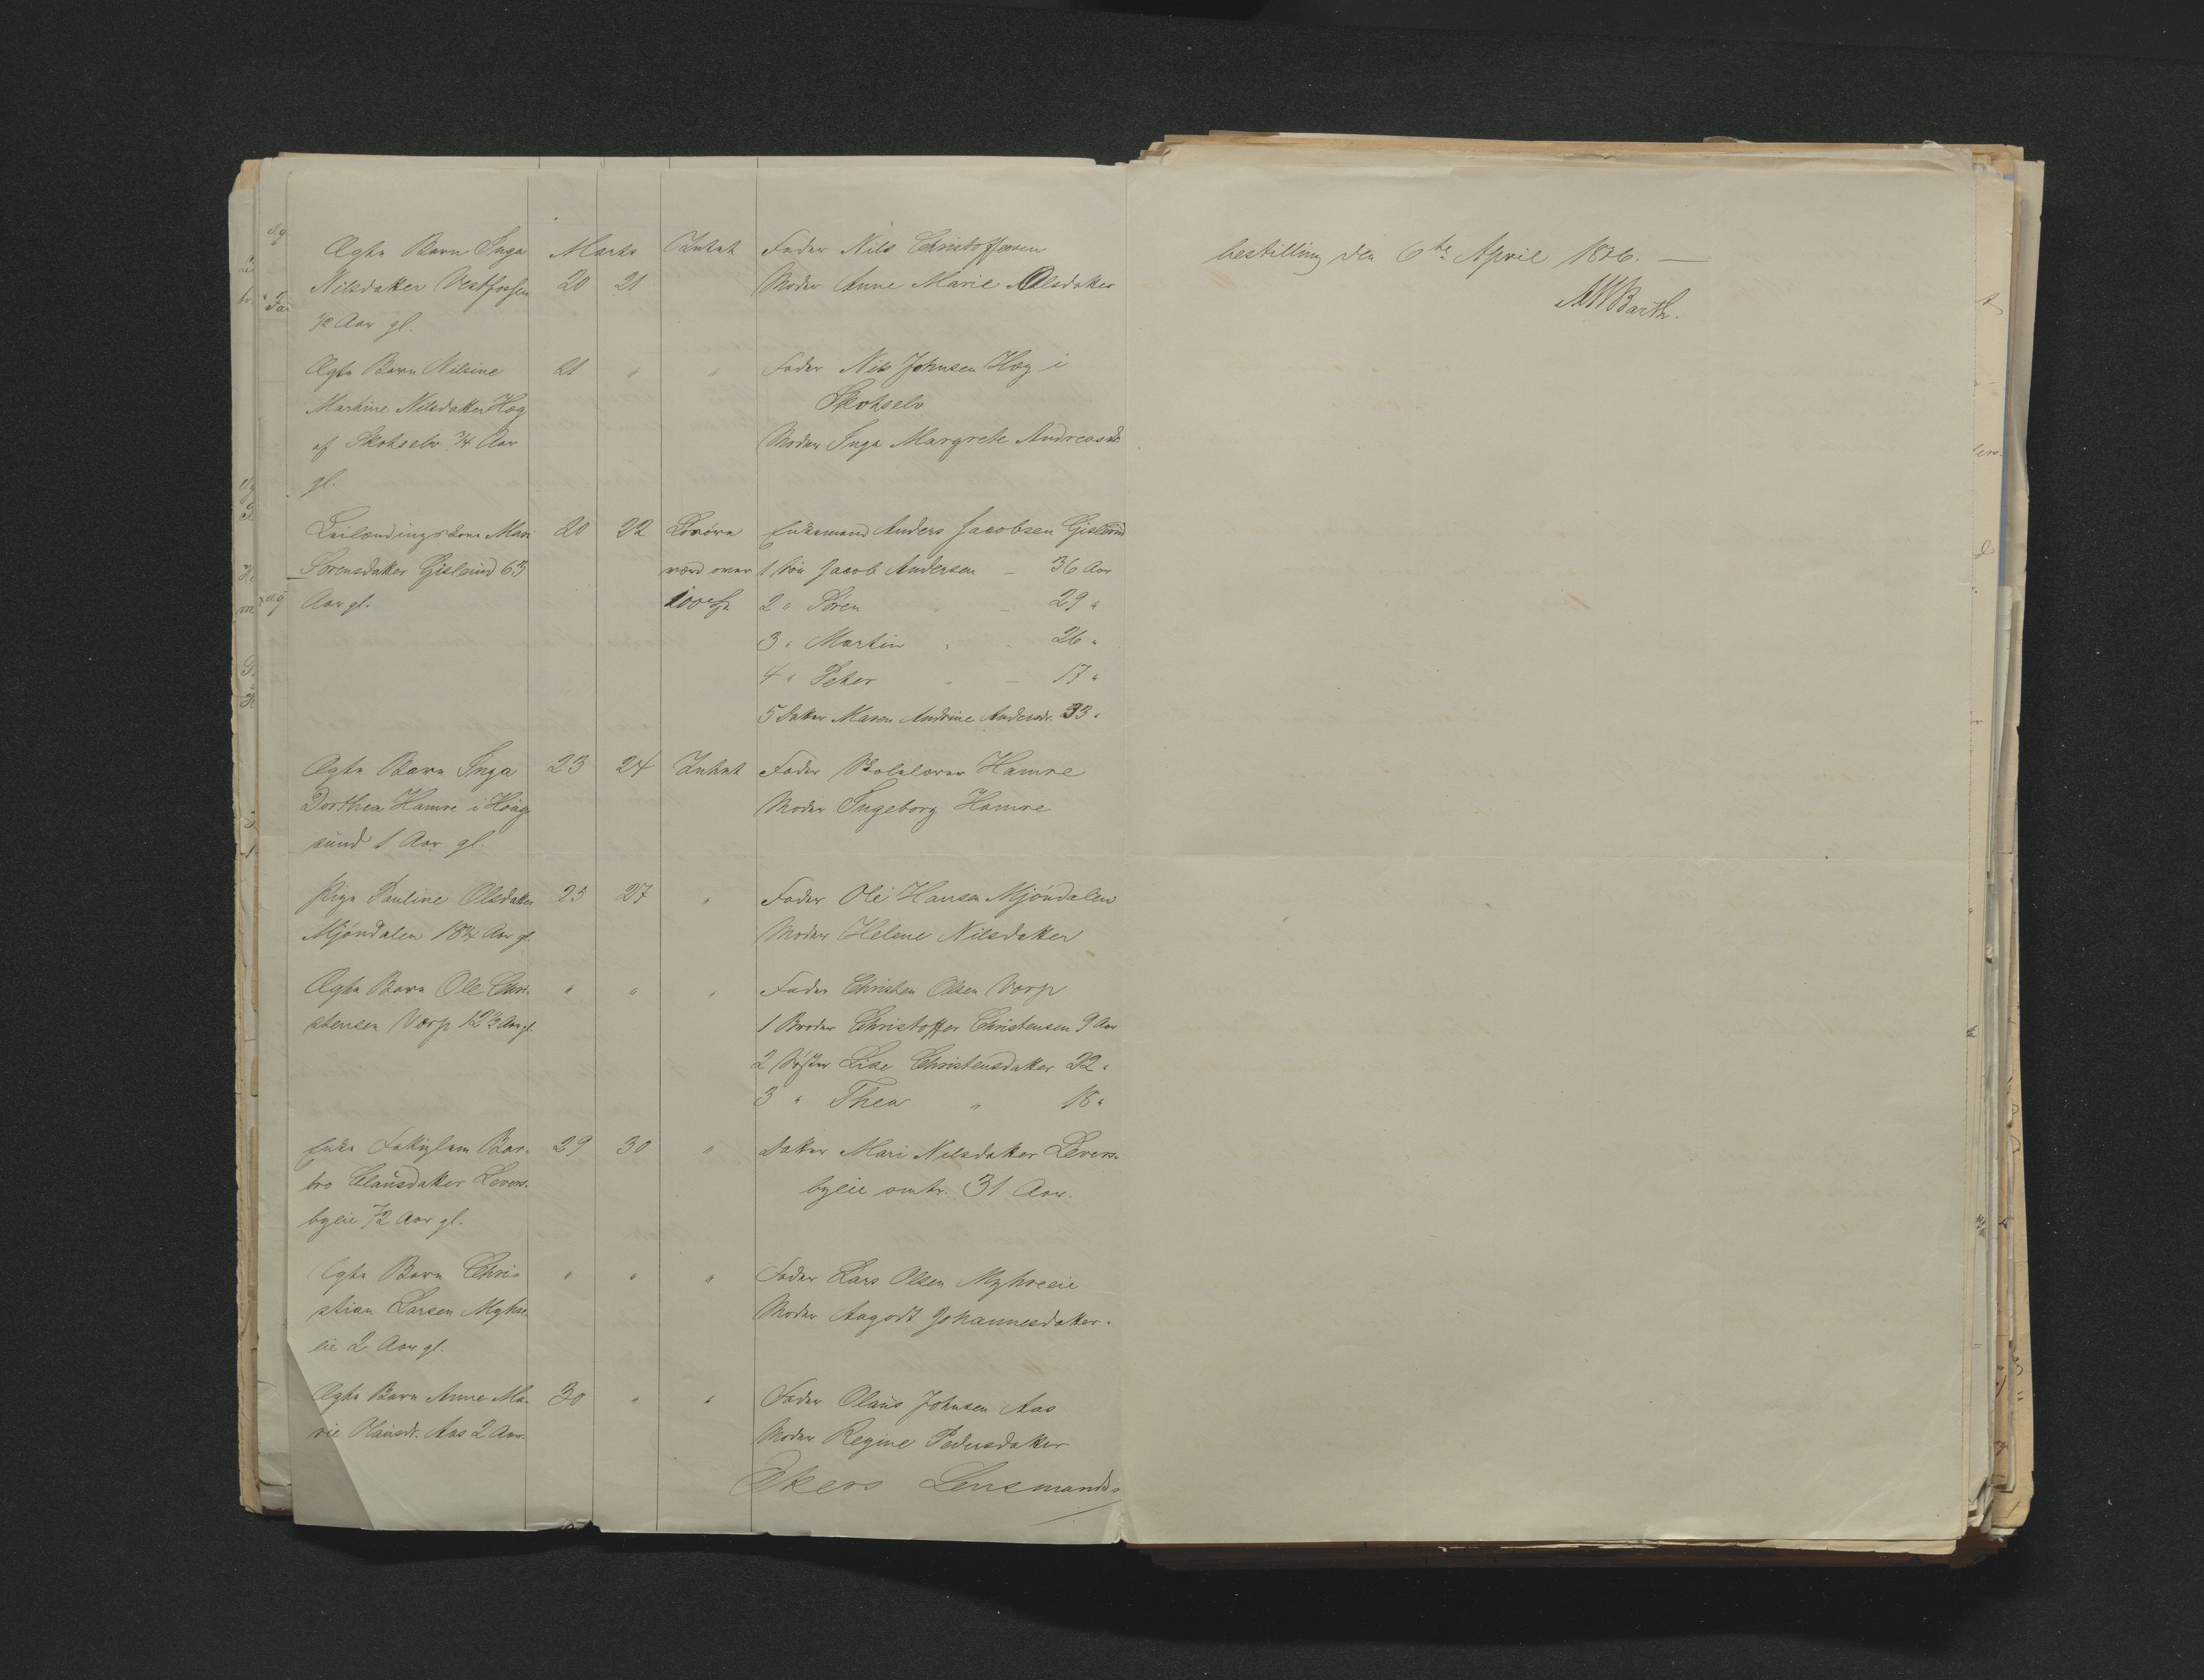 Ægte Barn Inga Marts Intet Fader Nils Christoffersen
Nilsdatter Vestfossen 20 21 Moder Anne Marie Olsdatter
1/2 Aar gl.
Ægte Barn Nilsine 21 " " Fader Nils Johnsen Hog i
Martine Nilsdatter Hog Skotselv
af Skotselv 3/4 Aar Moder Inga Margrete Andreasdr.
gl.
Leilændingskone Mari 20 22 Løsøre Enkemand Anders Jacobsen Gislerud
Sørensdatter Gislerud 63 værd over 1 Søn Jacob Andersen – 36 Aar
Aar gl. 100 2 " Søren " – 29 "
3 " Martin " – 26 "
4 " Peter " – 17 "
5 Datter Maren Andrine Andersdr. 33 "
Ægte Barn Inga 23 24 Intet Fader Skolelærer Hamre
Dorthea Hamre i Houg Moder Ingeborg Hamre
sund 1 Aar gl.
Pige Pauline Olsdatter 25 27 " Fader Ole Hansen Mjøndalen
Mjøndalen 18 3/4 Aar gl. Moder Helene Nilsdatter
Ægte Barn Ole Chri- " " " Fader Christen Olsen Vorp
stensen Vorp 12 1/3 Aar gl. 1 Broder Christoffer Christensen 9 Aar
2 Søster Lise Christensdatter 22 "
3 " Thea " 18 "
Enke Fattiglem Bar- 29 30 " Datter Mari Nilsdatter Levers-
bro Clausdatter Levers- byeie omtr. 31 Aar.
byeie 72 Aar gl.
Ægte Barn Chri- " " " Fader Lars Olsen Myhreeie
stian Larsen Myhre- Moder Aagodt Johannesdatter.
eie 2 Aar gl.
Ægte Barn Anne Ma- 30 " " Fader Olaus Johnsen Aas
rie Olausdr. Aas 2 Aar. Moder Regine Pedersdatter
Økers Lensmands-
bestilling den 6te April 1876. —
Barth.